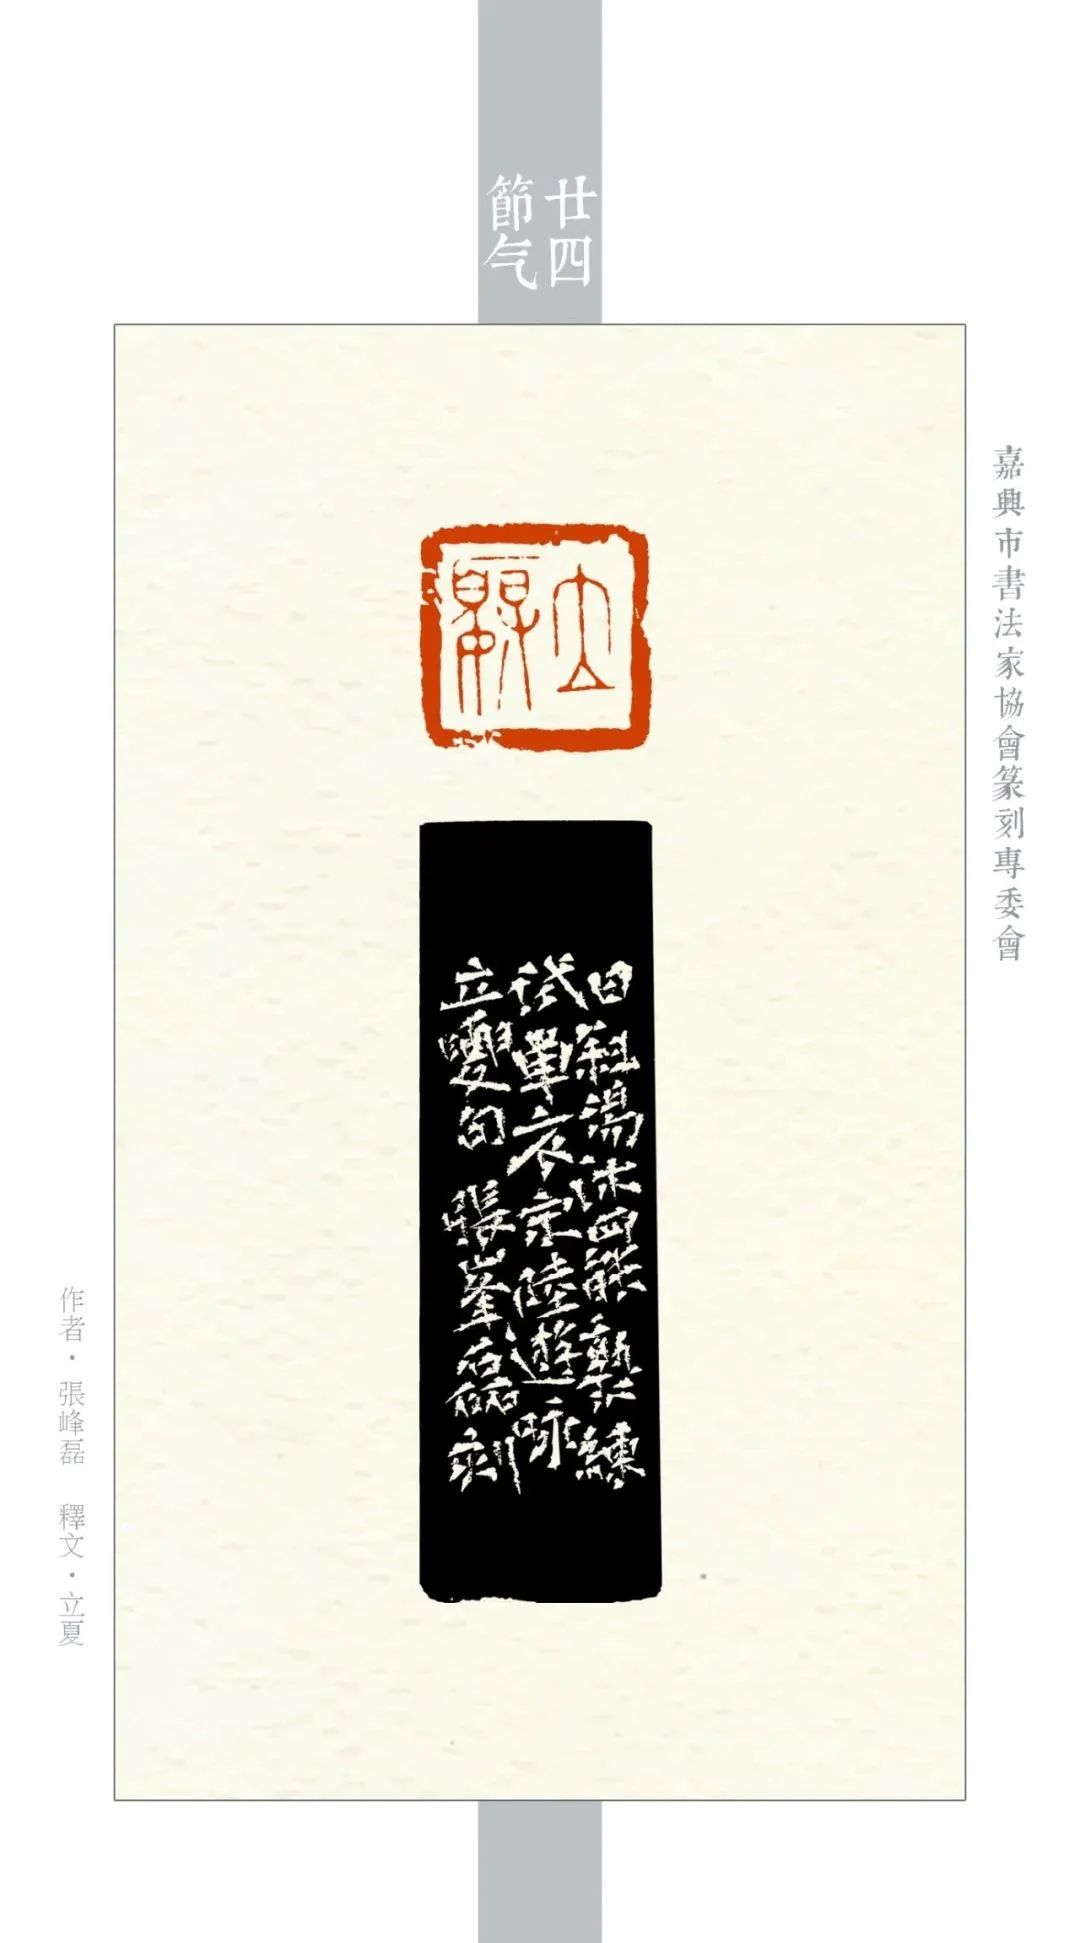 廿四
節气
嘉興市書法家協會篆刻專委會
立夏
日斜湯沐罷熟練
試單衣宋陸遊咏
立夏句 張峯磊刻
作者·張峰磊 釋文·立夏